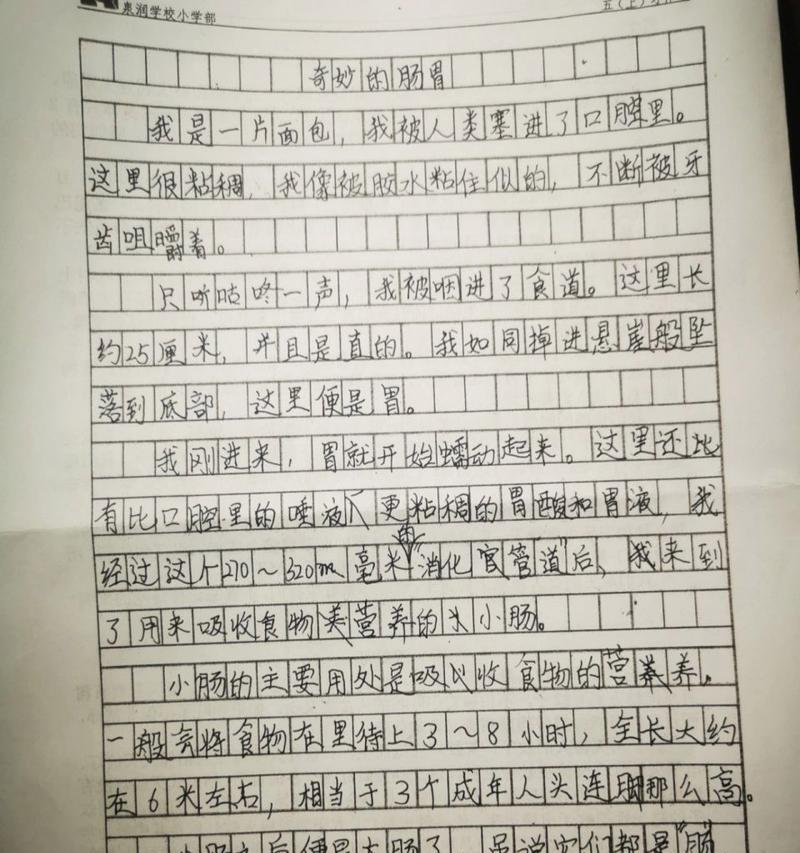 泉润学校小学部
五(上)
奇妙的肠胃
我是一片面包，我被人类塞进了口腔里。
这里很粘稠，我像被胶水粘住似的，不断被牙
齿咀嚼着。
只听咕咚一声，我被咽进了食道。这里长
约25厘米，并且是直的。我如同掉进悬崖般坠
落到底部，这里便是胃。
我刚进来，胃就开始蠕动起来。这里还比
有比口腔里的唾液更粘稠的胃酸和胃液，我
经过这个270～320m毫米的消化官管道"后，我来到
了用来吸收食物营养的小肠。
小肠的主要用处是吸收食物的营养。
一般会将食物在里待上3～8小时，全长大约
在6米左右，相当于3个成年人头连脚那么高。
小肠之后便是大肠了，虽说它们都是"肠